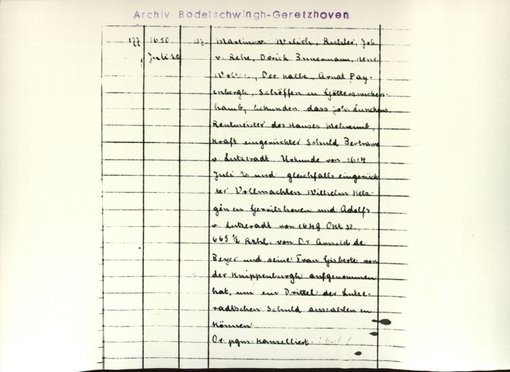 Archiv Bodelschwingh-Geretzhoven
177 1650 Martin v. Richter, Joh
Juli 20 v. Rehe, Derich Binnemann, Henr
Der halbe, Arnat Pay-
enbergh, Schöffen in Götterswicker-
hamb, bekunden dass Joh. Lünchens
Rentmeister des Hauses
Kraft eingerückter Schuld Bertrams
v. Lutzeradt Urkunde von 1614
Juli 20 und gleichfalls eingerück
ter Vollmachten Wilhelm Ketz-
gen in Gerritshoven und Adolfs
v. Lutzeradt von 1649 Okt 30
665 Rthl. von Dr Arnold de
Beyer und seine Frau Gisberte von
der Knippenburgh aufgenommen
hat, um ein Drittel der Lutze-
radtschen Schuld auszahlen zu
können
Or. pgm. kanselliert